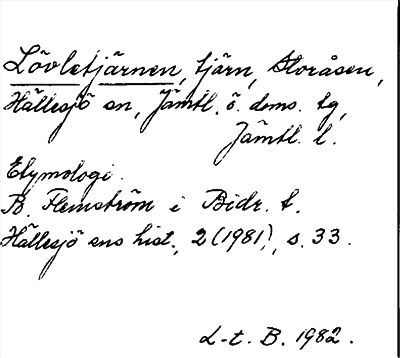 Lövletjärnen, tjärn, Storåsen,
Hällesjö sn, Jämtl. ö. doms. tg,
Jämtl. l.
Etymologi.
B. Flemström i Bidr. t.
Hällesjö sns hist., 2 (1981), s. 33.
L-t. B. 1982.